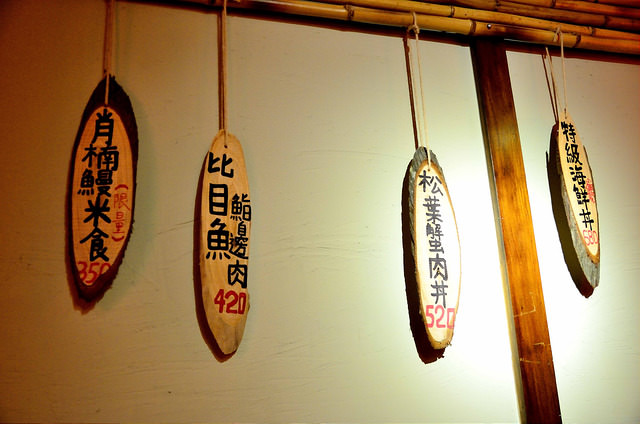 肖楠鰻米食
(限量)
350
比目魚
鮨邊肉
420
松葉蟹肉丼
520
特級海鮮丼
580